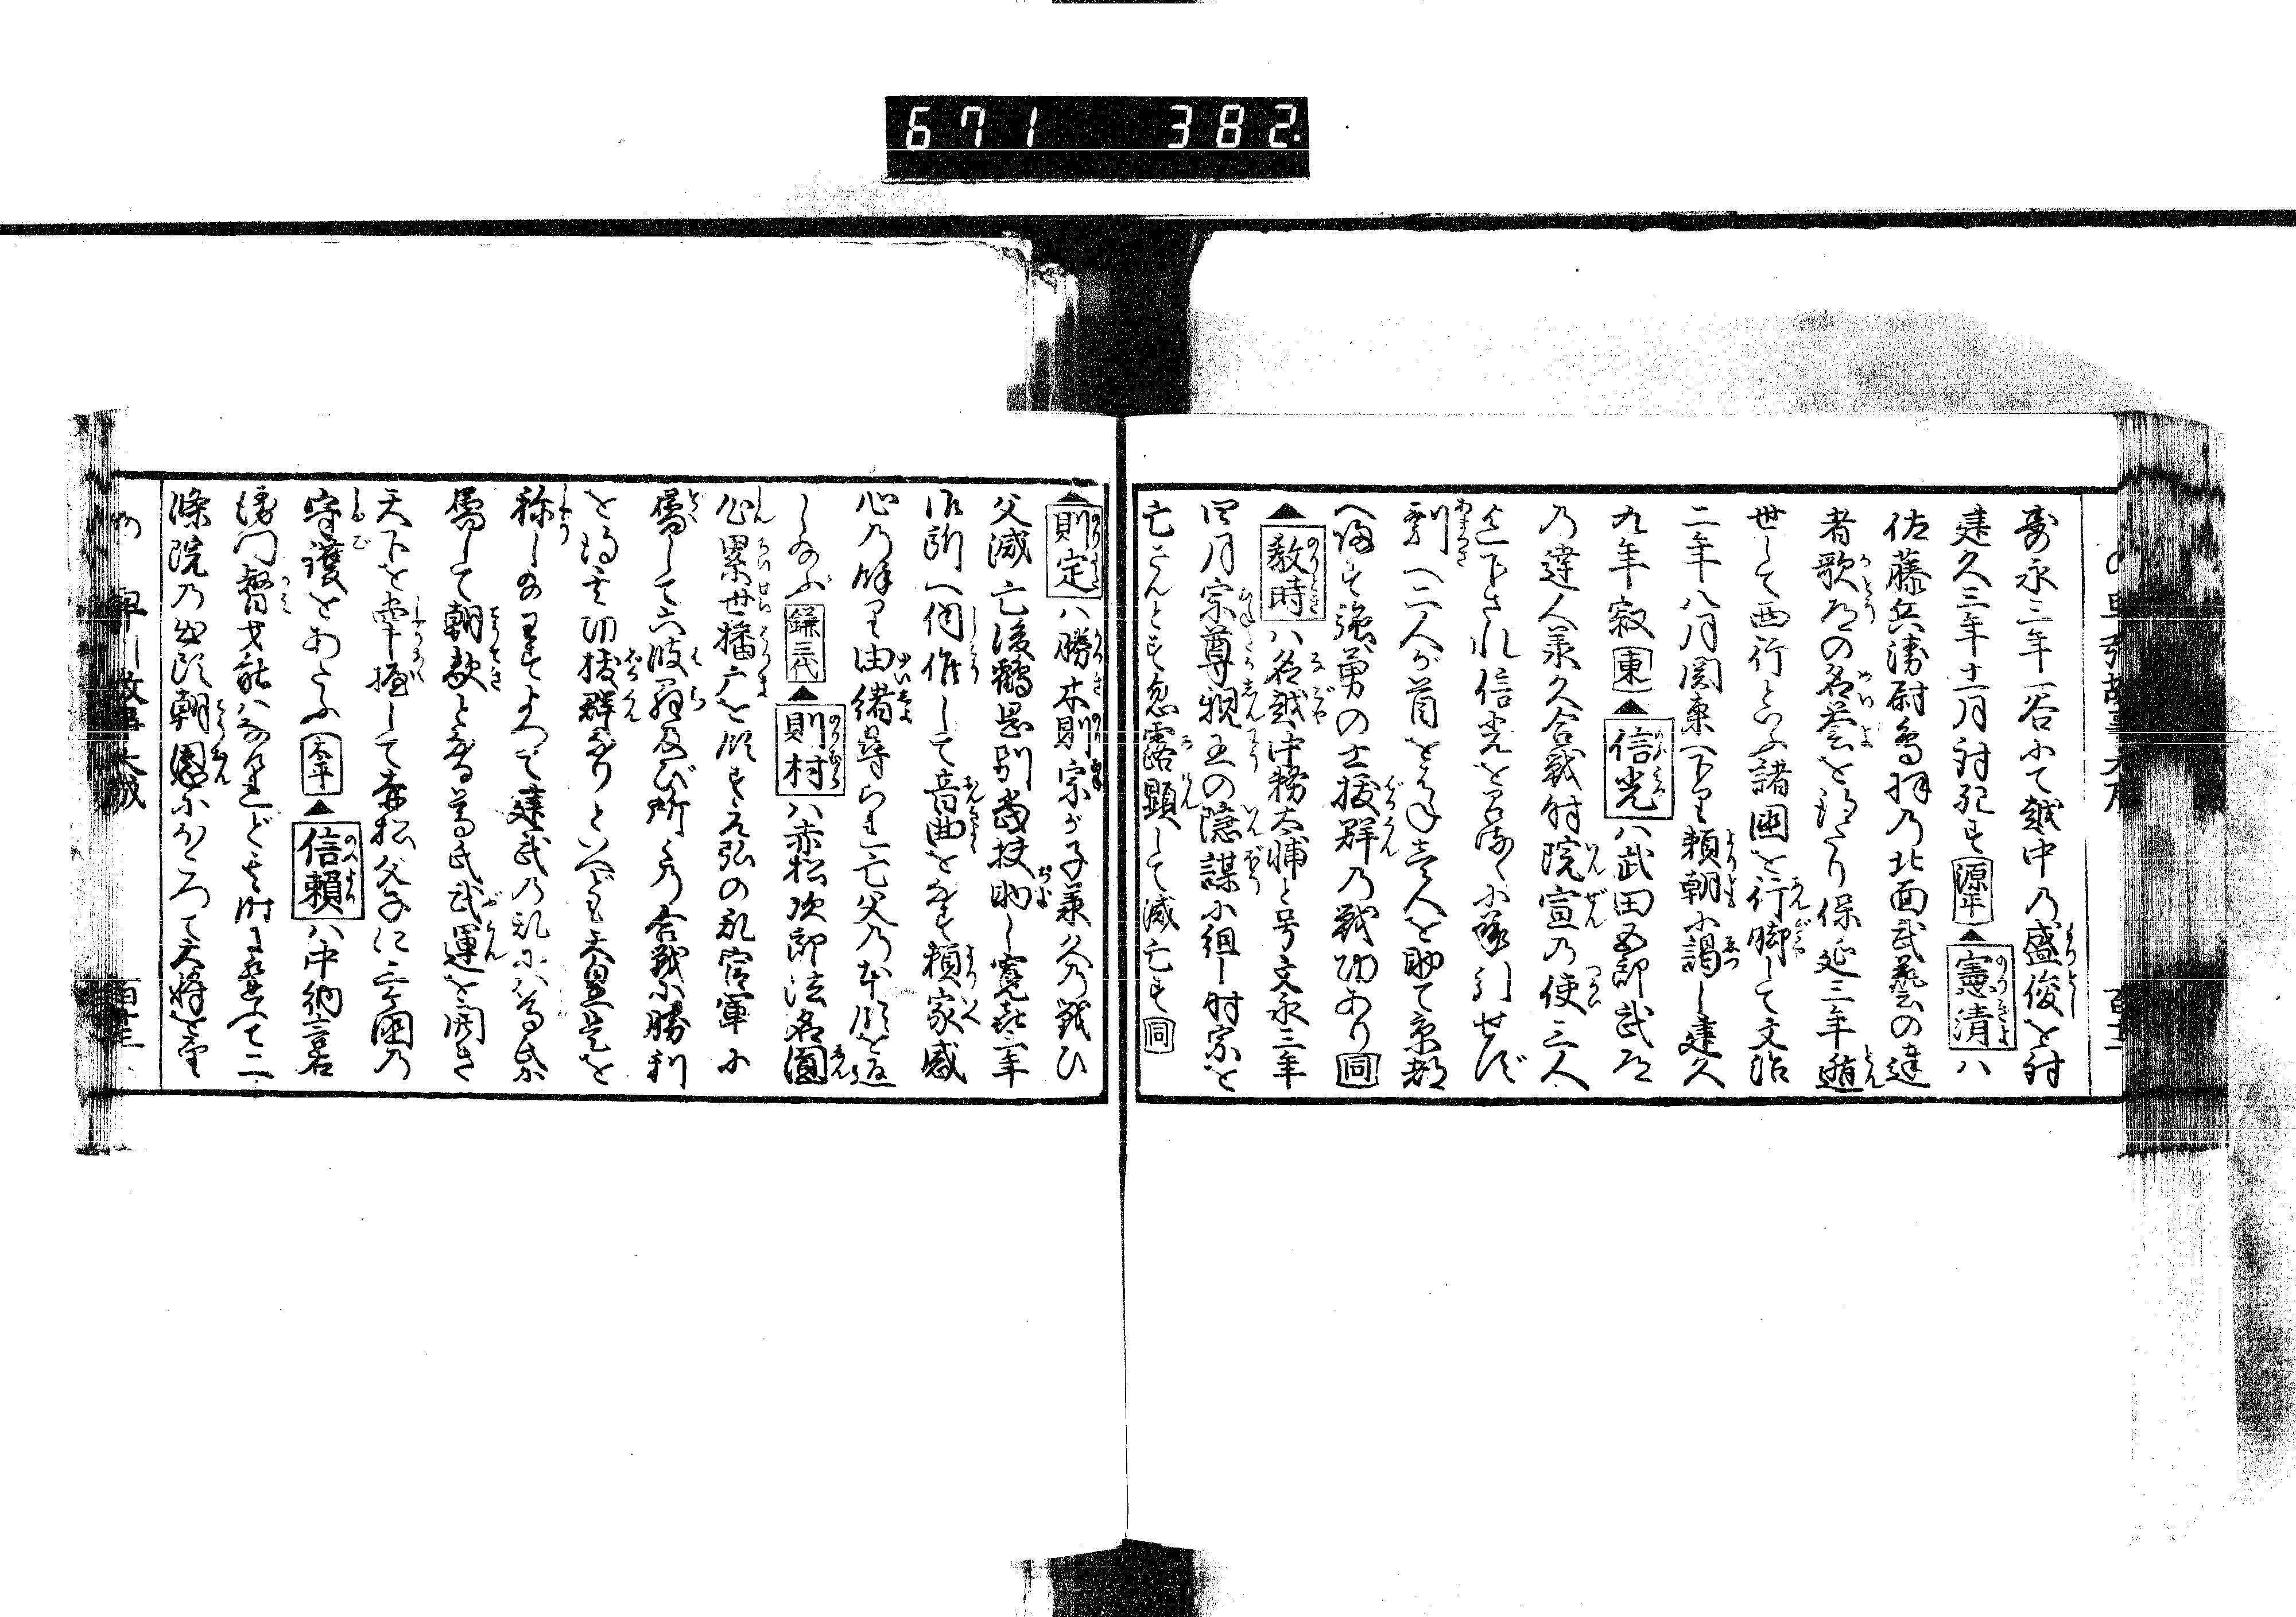 671 382.
寿永三年一谷にて越中乃盛俊を討
建久三年十二月討死す源平▲憲清ハ
佐藤兵衛尉鳥羽乃北面武藝の達
者歌道の名誉を得たり保延三年遁
世して西行といふ諸国を行脚して文治
二年八月関東へ下り頼朝に謁し建久
九年寂東▲信光ハ武田五郎武道
乃達人承久合戦時院宣乃使三人
下され信光を
へ二人が首を壱人を助て京都
へ帰す強勇の士抜群乃戦功あり同
▲教時ハ名越中務大輔と号文永三年
四月宗尊親王の隠謀に組し時宗を
亡さんとす忽露顕して滅亡す同
▲則定ハ勝木則宗が子承久乃戦ひ
父滅亡後鶴 別当扶助し寛喜三年
御所へ伺候して音曲をなす頼家感
心乃餘り由緒尋られ亡父乃本領を返
し給ふ鎌三代▲則村ハ赤松次郎法名圓
心累世播广を領す元弘の乱官軍に
属して六波羅及び所々乃合戦に勝利
を得其功抜群なりといへども天恩是を
称し給ハずよつて建武乃乱にハ尊氏に
属して朝敵となる尊氏武運を開き
天下を掌握して赤松父子に三ヶ国乃
守護をあたふ太平▲信頼ハ中納言右
衛門督才能ハなけれども時に逢て二
條院乃出頭朝恩にほこつて大将を望